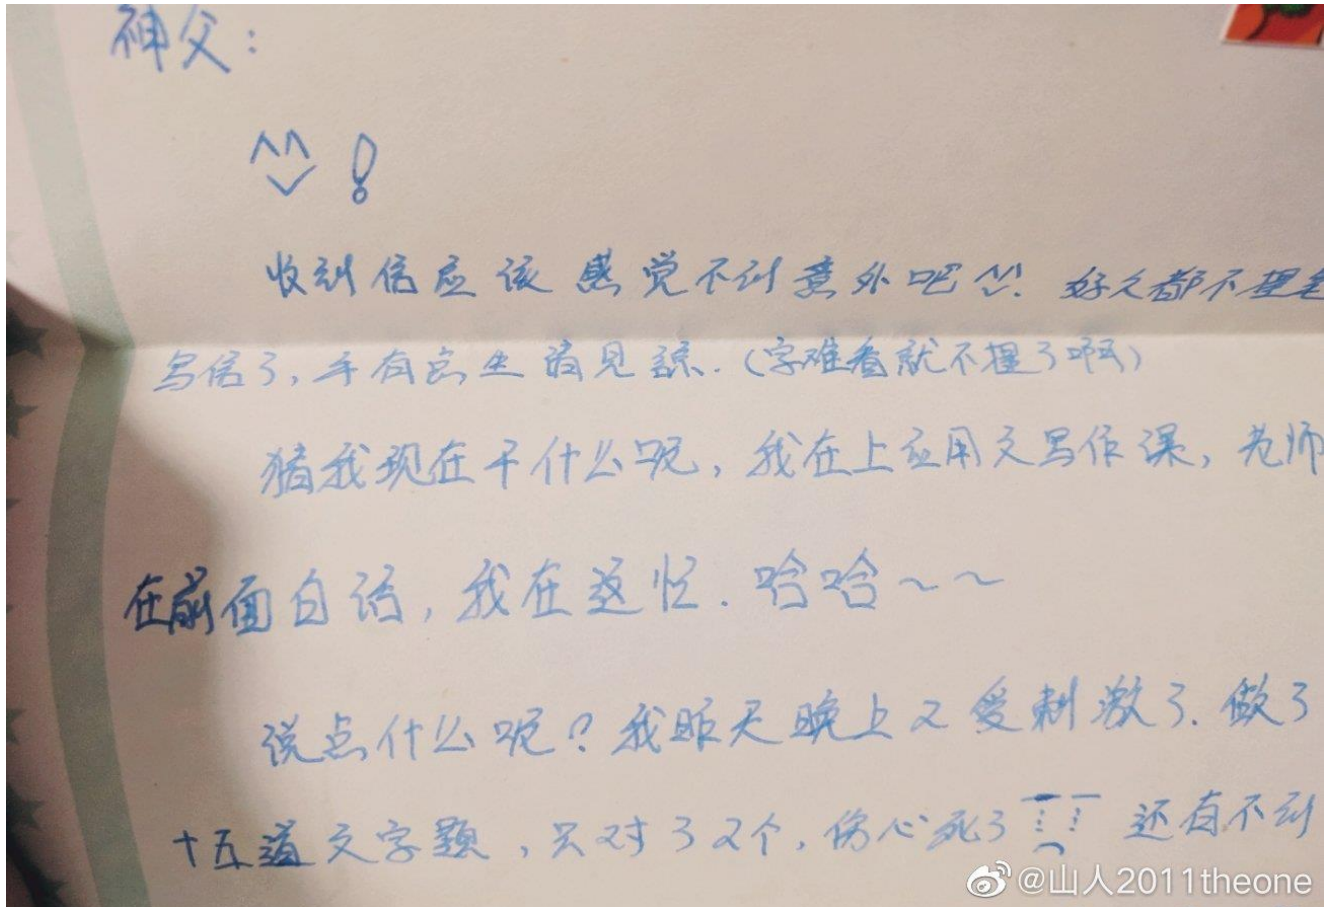 神父：
^^ !
收到信应该感觉不到意外吧^^. 好久都不提笔
写信了，手有点生请见諒.（字难看就不提了啊）
猜我现在干什么呢，我在上应用文写作课，老师
在前面自话，我在这忙. 哈哈～～
说点什么呢？我昨天晚上又受刺激了. 做了
十五道文字题，只对了2个，伤心死了 还有不到
@山人2011theone